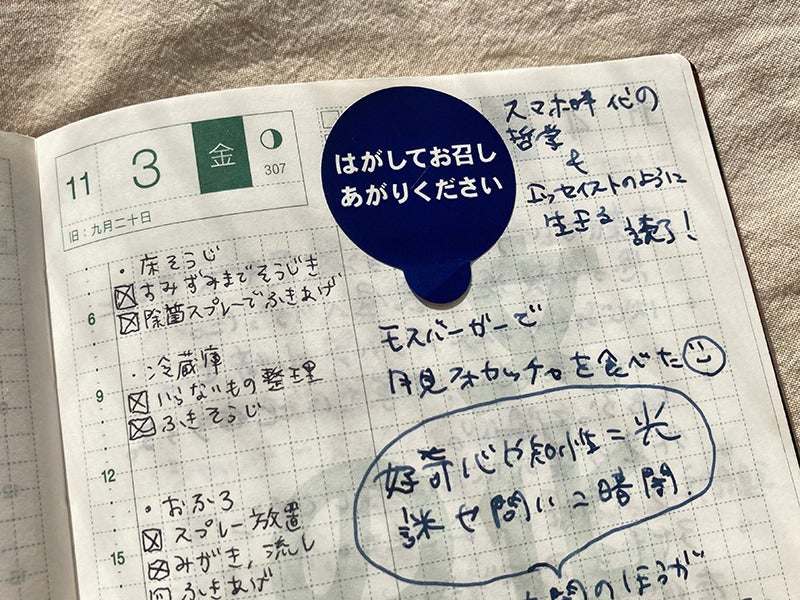 11 3 金
307
旧:九月二十日
はがしてお召し
あがりください
スマホ時代の
哲学
と
エッセイストのように
生きる
読了!
・床そうじ
すみずみまでそうじき
6
除菌スプレーでふきあげ
モスバーガーで
月見フォカッチャを食べた
・冷蔵庫
9
いらないもの整理
ふきそうじ
好奇心や知性=光
謎や問い=暗闇
12
・おふろ
スプレー放置
15
みがき、流し
ふきあげ
のほうが